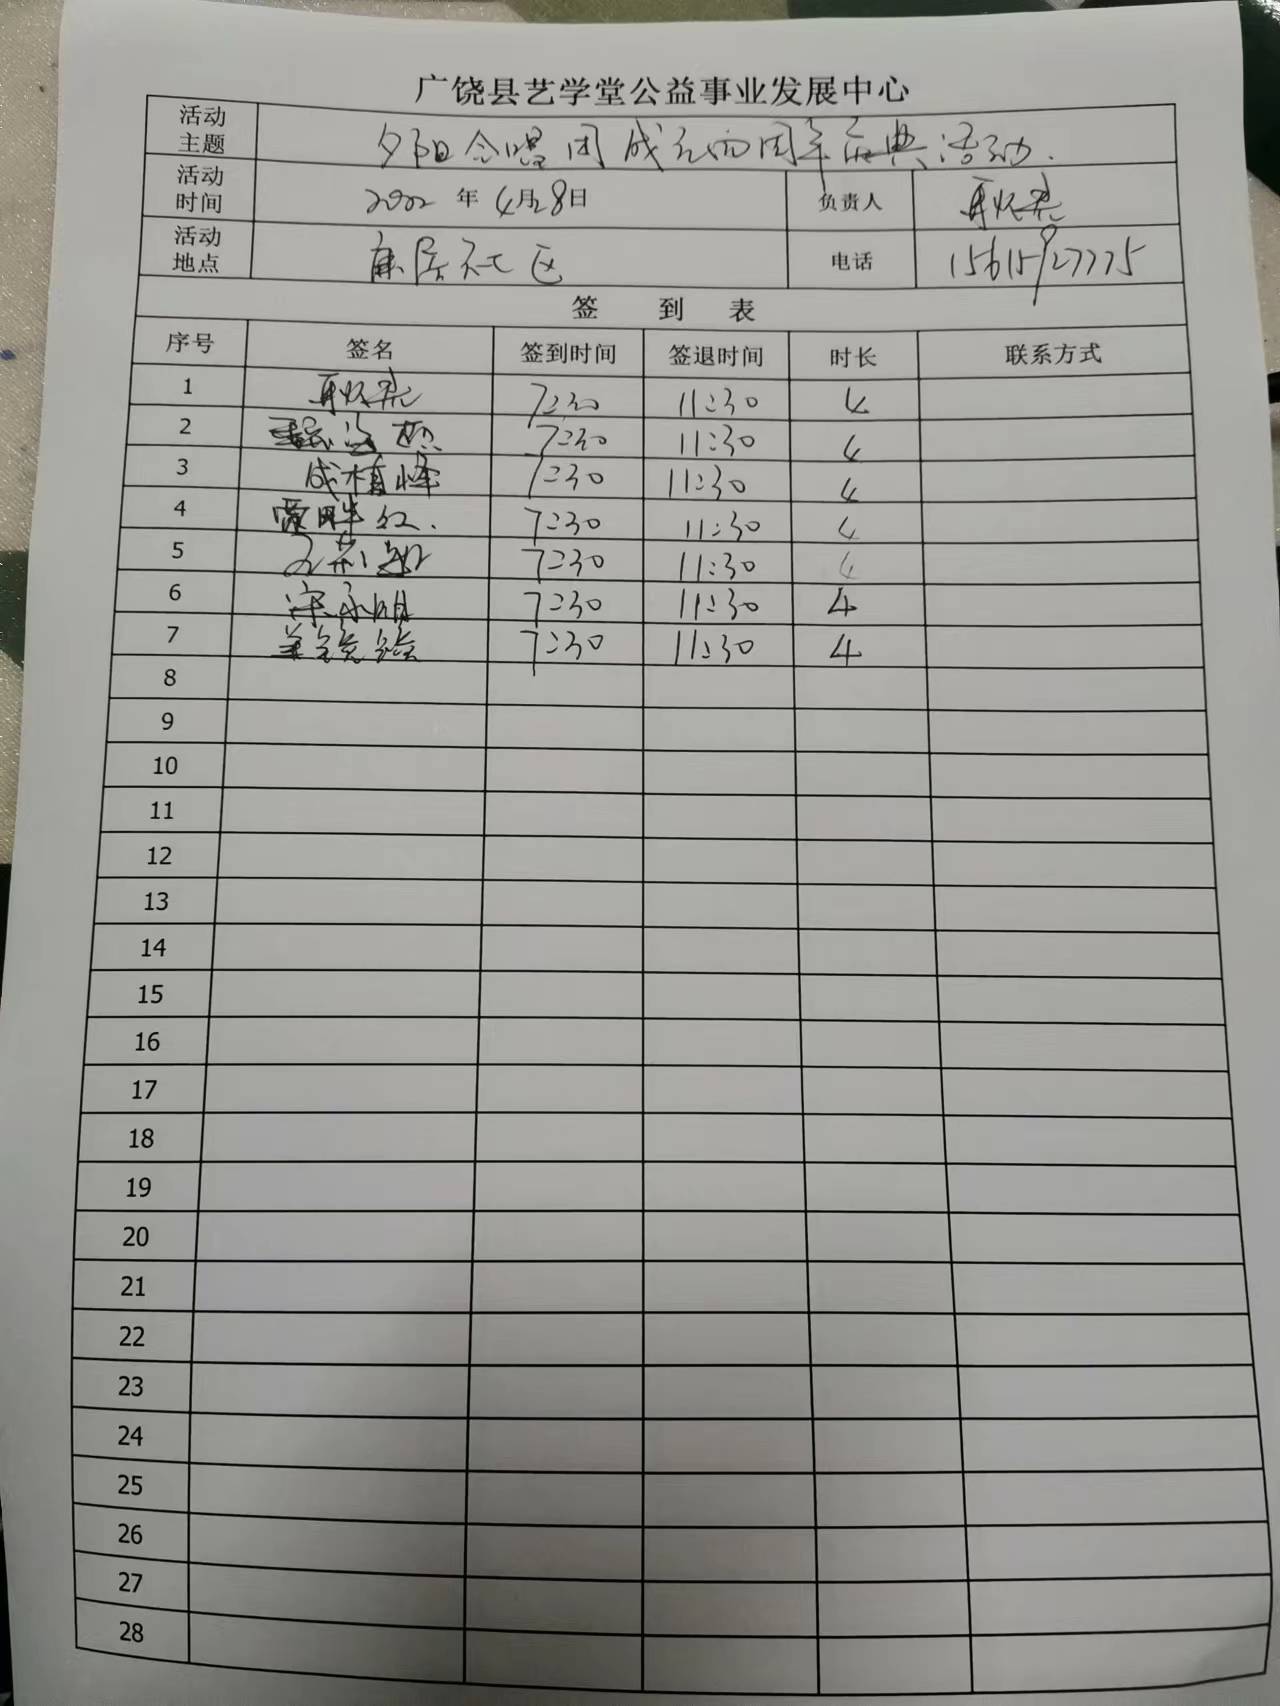 广饶县艺学堂公益事业发展中心
活动主题 夕阳合唱团成立两周年庆典活动.
活动时间 2022年4月28日 负责人
活动地点 康居社区 电话 15615927775
签到表
序号 签名 签到时间 签退时间 时长 联系方式
1 7:30 11:30 4
2 7:30 11:30 4
3 成植峰 7:30 11:30 4
4 7:30 11:30 4
5 7:30 11:30 4
6 宋永明 7:30 11:30 4
7 7:30 11:30 4
8
9
10
11
12
13
14
15
16
17
18
19
20
21
22
23
24
25
26
27
28